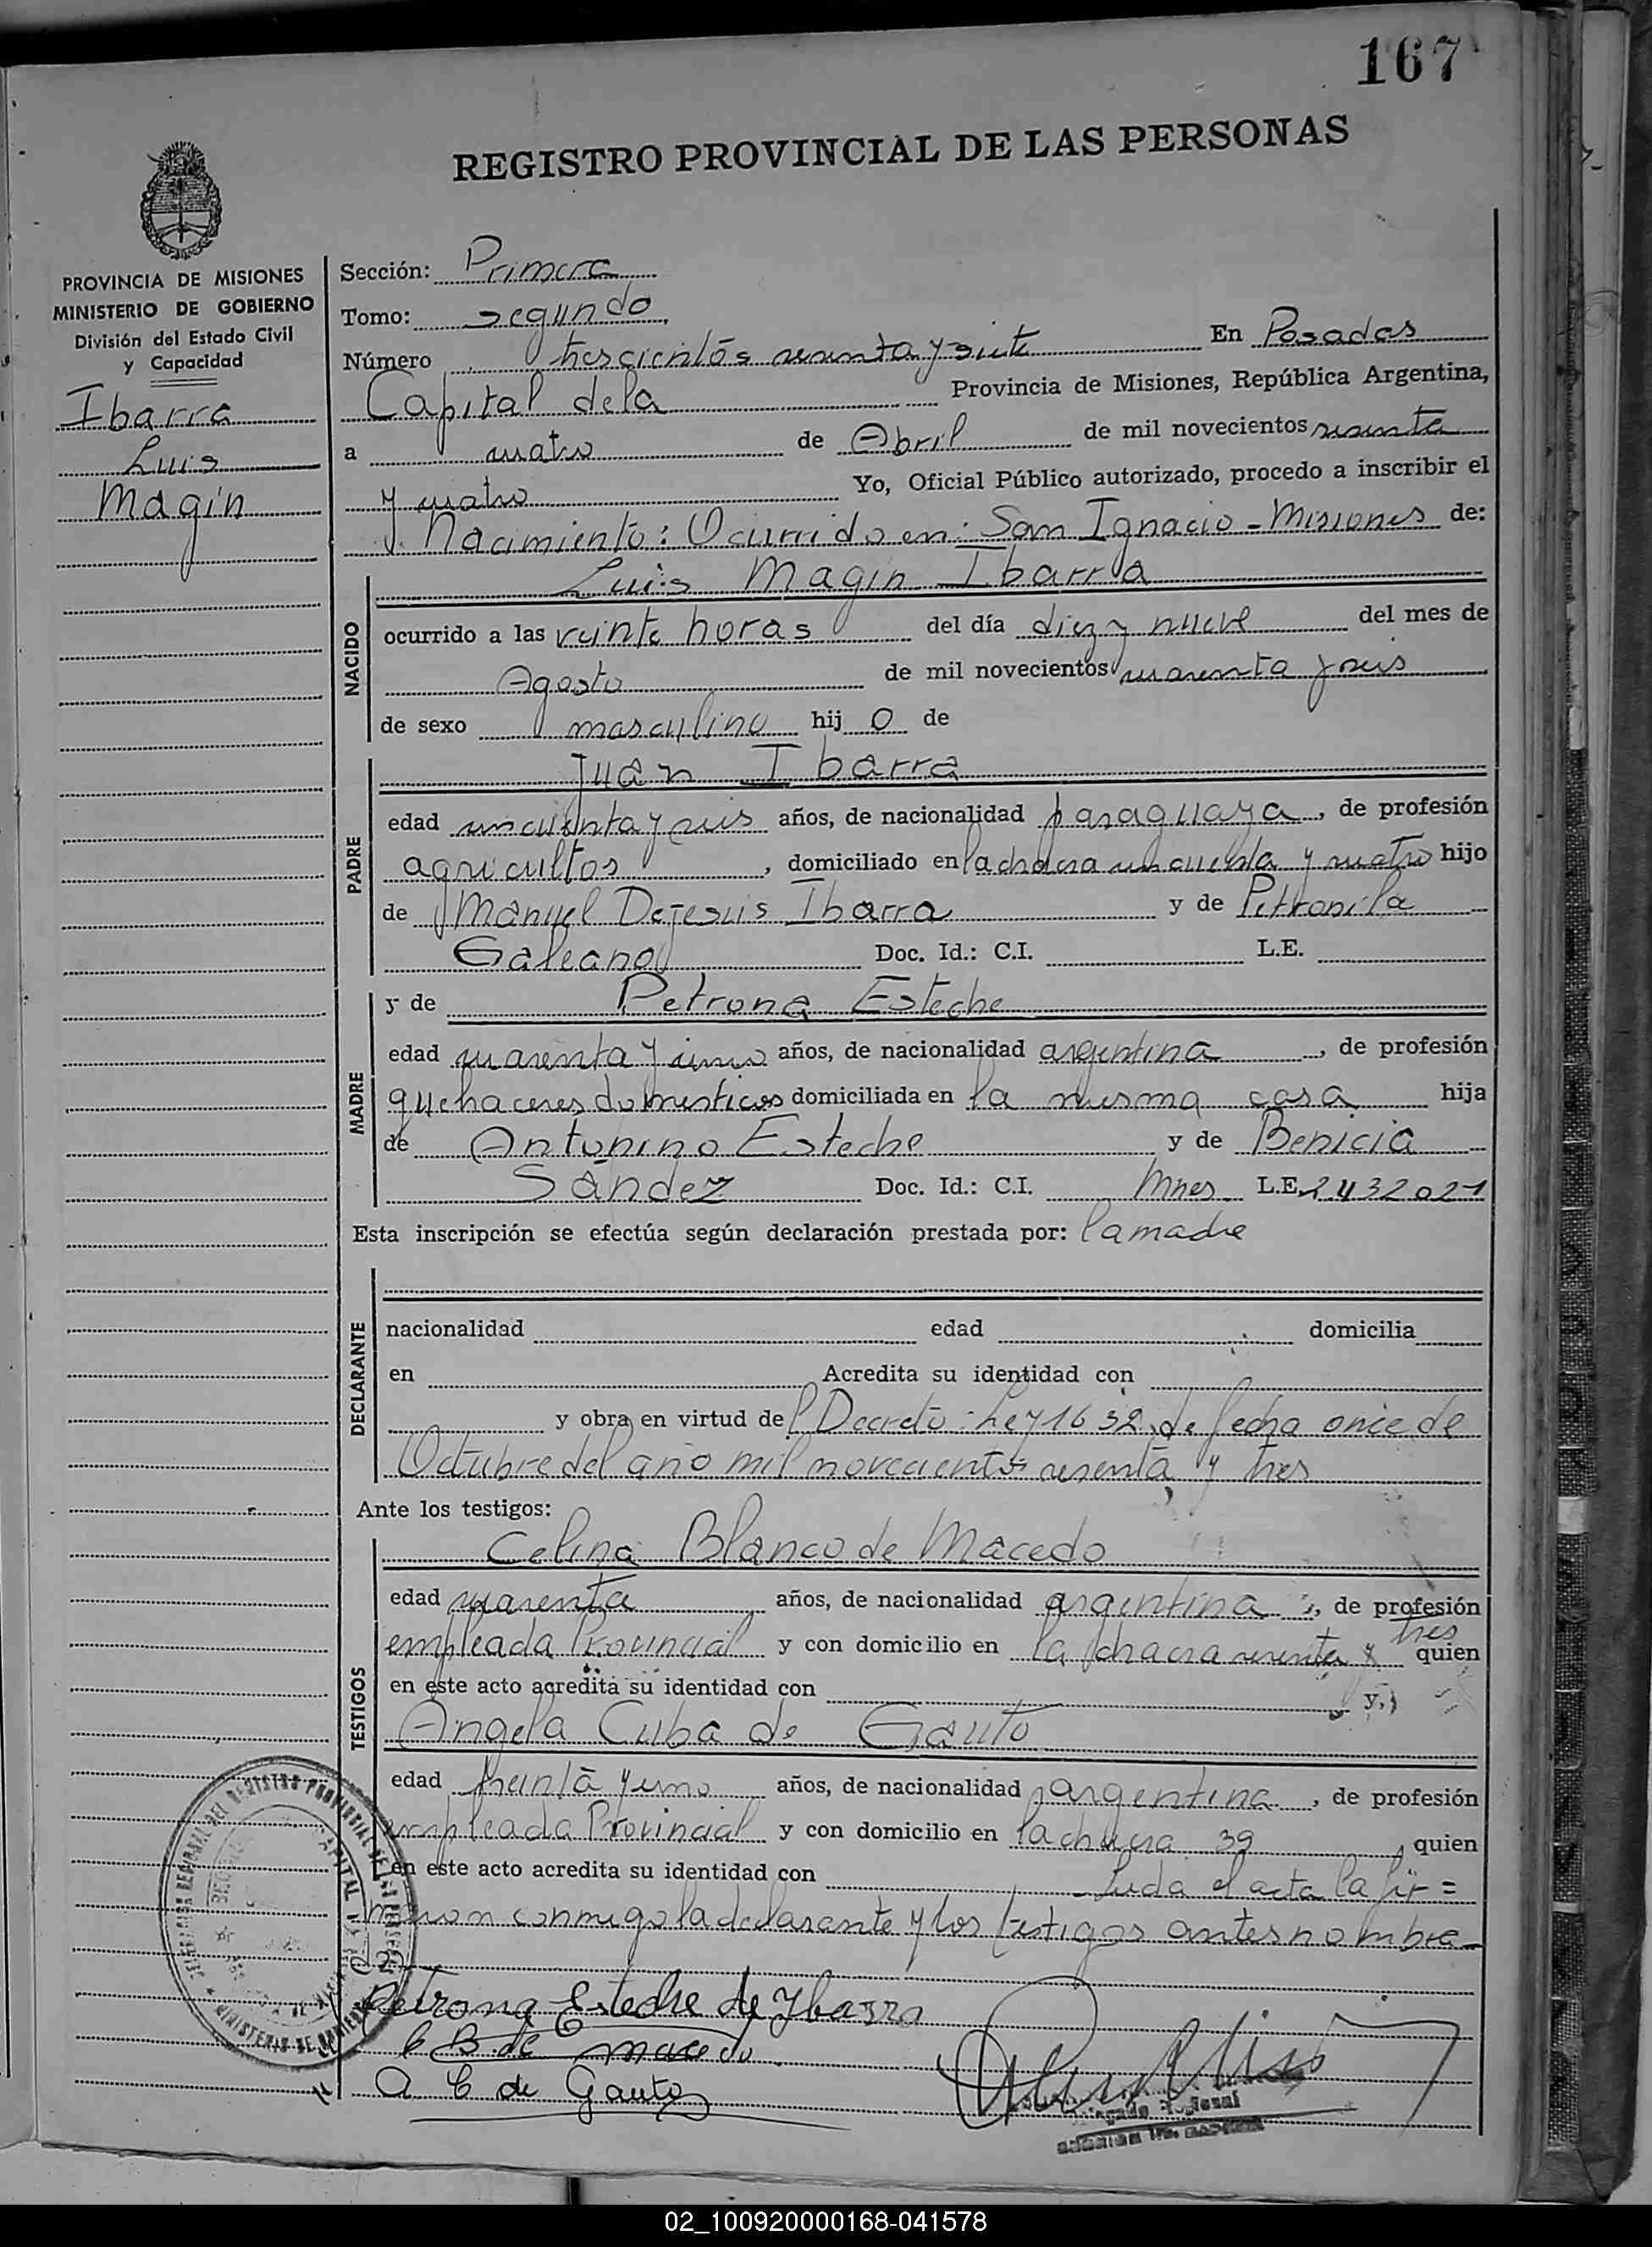 167
REGISTRO PROVINCIAL DE LAS PERSONAS
PROVINCIA DE MISIONES
MINISTERIO DE GOBIERNO
División del Estado Civil
y Capacidad
Ibarra
Luis
Magin
Sección: Primera
Tomo: segundo
Número trescientos sesenta y siete En Posadas
Capital de la Provincia de Misiones, República Argentina,
a cuatro de Abril de mil novecientos sesenta
y cuatro Yo, Oficial Público autorizado, procedo a inscribir el
Nacimiento: Ocurrido en: San Ignacio - Misiones de:
Luis Magin Ibarra
NACIDO
ocurrido a las veinte horas del día diez y nueve del mes de
Agosto de mil novecientos cuarenta y seis
de sexo masculino hij o de
Juan Ibarra
PADRE
edad cincuenta y seis años, de nacionalidad paraguaya, de profesión
agricultor, domiciliado en la chacra cincuenta y cuatro hijo
de Manuel Dejesus Ibarra y de Petronila
Galeano Doc. Id.: C.I. L.E.
y de Petrona Esteche
MADRE
edad cuarenta y uno años, de nacionalidad argentina, de profesión
quehaceres domesticos domiciliada en la misma casa hija
de Antonino Esteche y de Benicia
Sandez Doc. Id.: C.I. Mnes L.E. 2432021
Esta inscripción se efectúa según declaración prestada por: la madre
DECLARANTE
nacionalidad edad domicilia
en Acredita su identidad con
y obra en virtud del Decreto-Ley 1632, de fecha once de
Octubre del año mil novecientos sesenta y tres
Ante los testigos:
Celina Blanco de Macedo
TESTIGOS
edad cuarenta años, de nacionalidad argentina, de profesión
empleada Provincial y con domicilio en la chacra sesenta y tres quien
en este acto acredita su identidad con y,
Angela Cuba de Gauto
edad treinta y uno años, de nacionalidad argentina, de profesión
empleada Provincial y con domicilio en la chacra 39, quien
en este acto acredita su identidad con Leida el acta la fir=
maron conmigo la declarante y los testigos antes nombra-
dos
Petrona Esteche de Ybarra
C B de Macedo
A C de Gauto
02_100920000168-041578